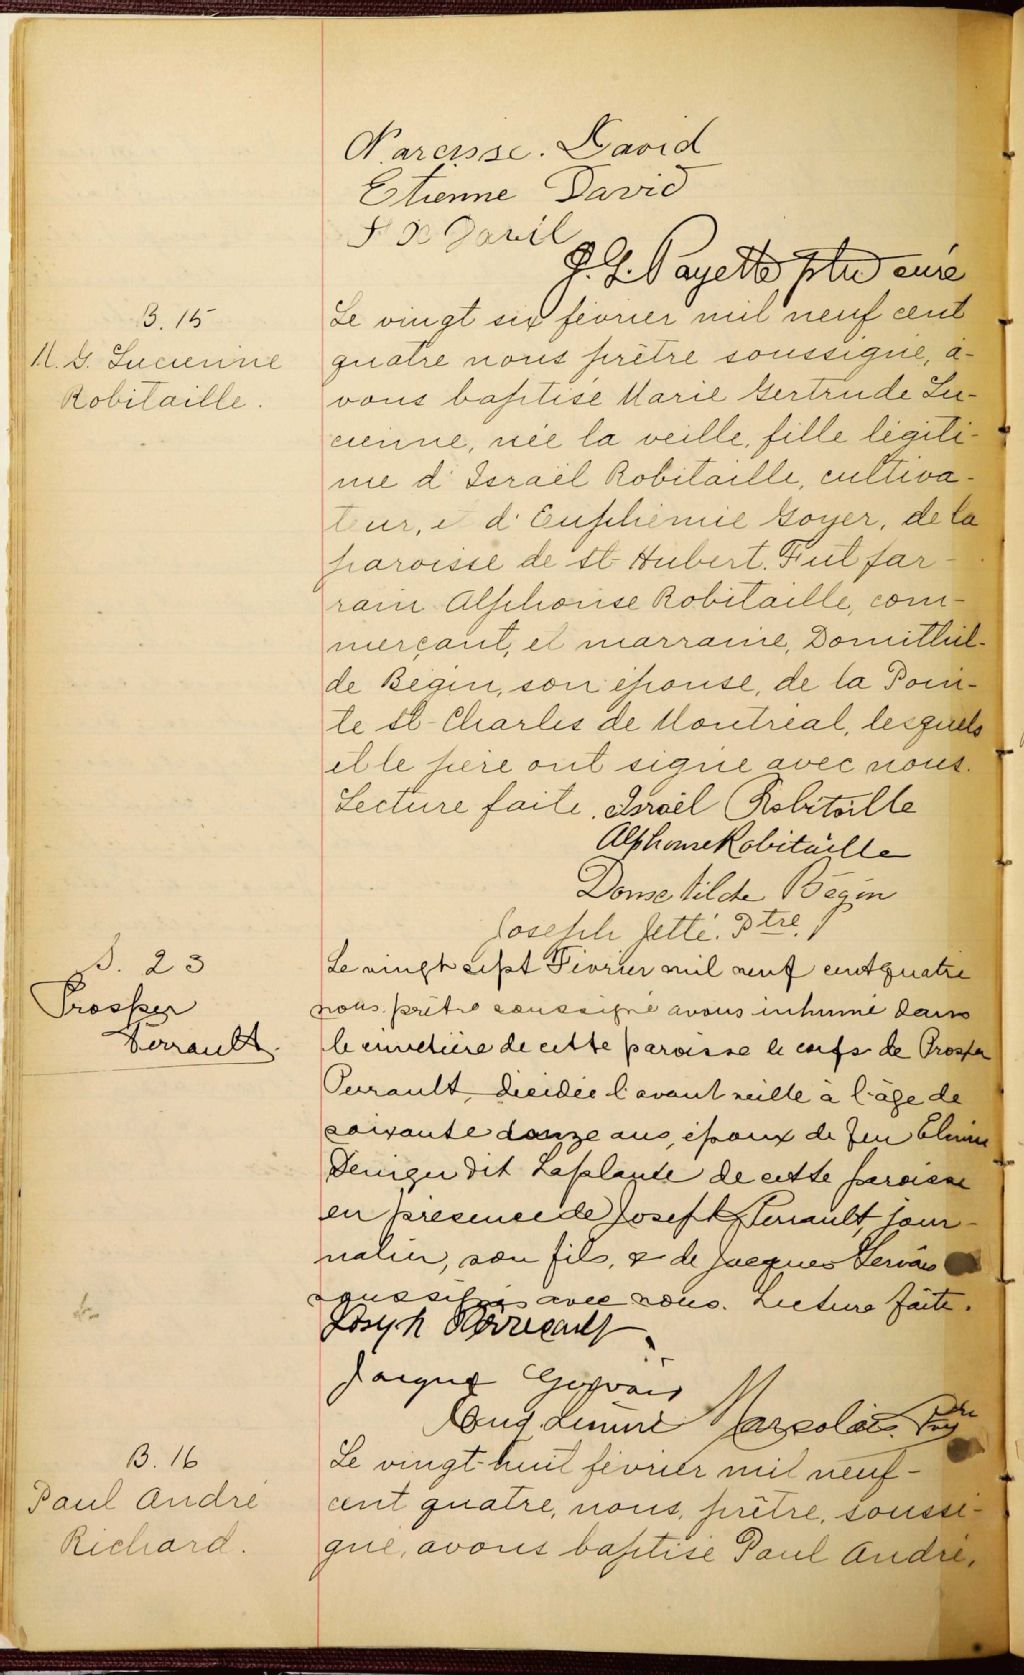 Narcisse. David
Etienne David
F X David
J. G. Payette ptre curé
B. 15
M. G. Lucienne
Robitaille.
Le vingt six février mil neuf cent
quatre nous prêtre soussigné, a-
vons baptisé Marie Gertrude Lu-
cienne, née la veille, fille légiti-
me d'Israël Robitaille, cultiva-
teur, et d'Euphémie Goyer, de la
paroisse de St-Hubert. Fut par-
rain Alphonse Robitaille, com-
merçant, et marraine, Domithil-
de Bégin, son épouse, de la Poin-
te St-Charles de Montréal, lesquels
et le père ont signé avec nous.
Lecture faite. Israël Robitaille
Alphonse Robitaille
Domitilde Bégin
Joseph Jetté. Ptre.
S. 23
Prosper
Perrault
Le vingt sept Février mil neuf cent quatre
nous prêtre soussigné avons inhumé dans
le cimetière de cette paroisse le corps de Prosper
Perrault, décédée l'avant veille à l'âge de
soixante douze ans, époux de feu
Deniger dit Laplante de cette paroisse
en présence de Joseph Perrault, jour-
nalier, son fils, & de Jacques Gervais
soussignés avec nous. Lecture faite.
Joseph Perreault
Jacques Gervais
Marsolais Ptre
B. 16
Paul André
Richard.
Le vingt-huit février mil neuf-
cent quatre, nous, prêtre, soussi-
gné, avons baptisé Paul André,